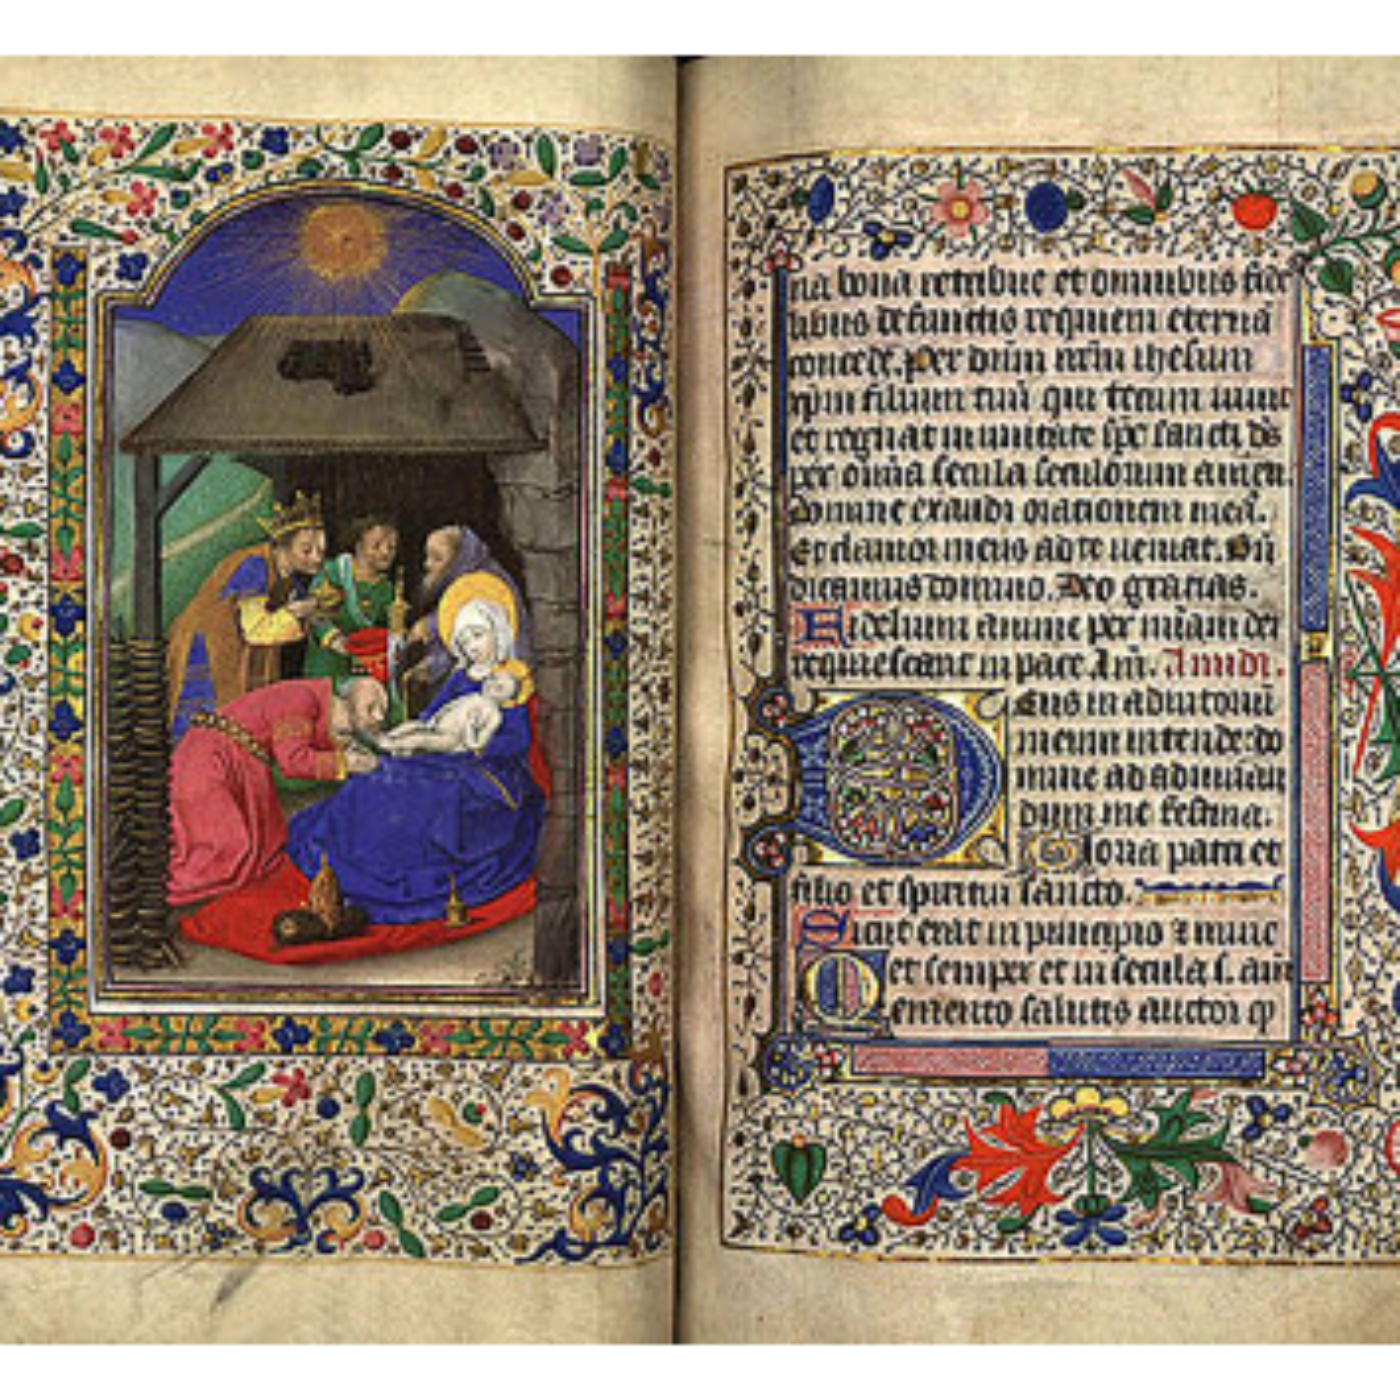 na bona retribue et omnibus fide
libus defunctis requiem eternā
concede. Per dnm̄ nrm̄ ihesum
xp̄m filium tuū qui tecum uiuit
et regnat in unitate sp̄c sancti ds̄
per omīa secula seculorum amen.
Domine exaudi orationem meā.
Et clamor meus ad te ueniat. Bn̄
dicamus domino. Deo gracias.
Fidelium anime per mīam dei
requiescant in pace. Am̄.
Deus in adiutoriū
meum intende: do
mine ad adiuuan
dum me festina.
Gloria patri et
filio et spiritui sancto.
Sicut erat in principio & nunc
et semper et in secula s. am̄
Memento salutis auctor q